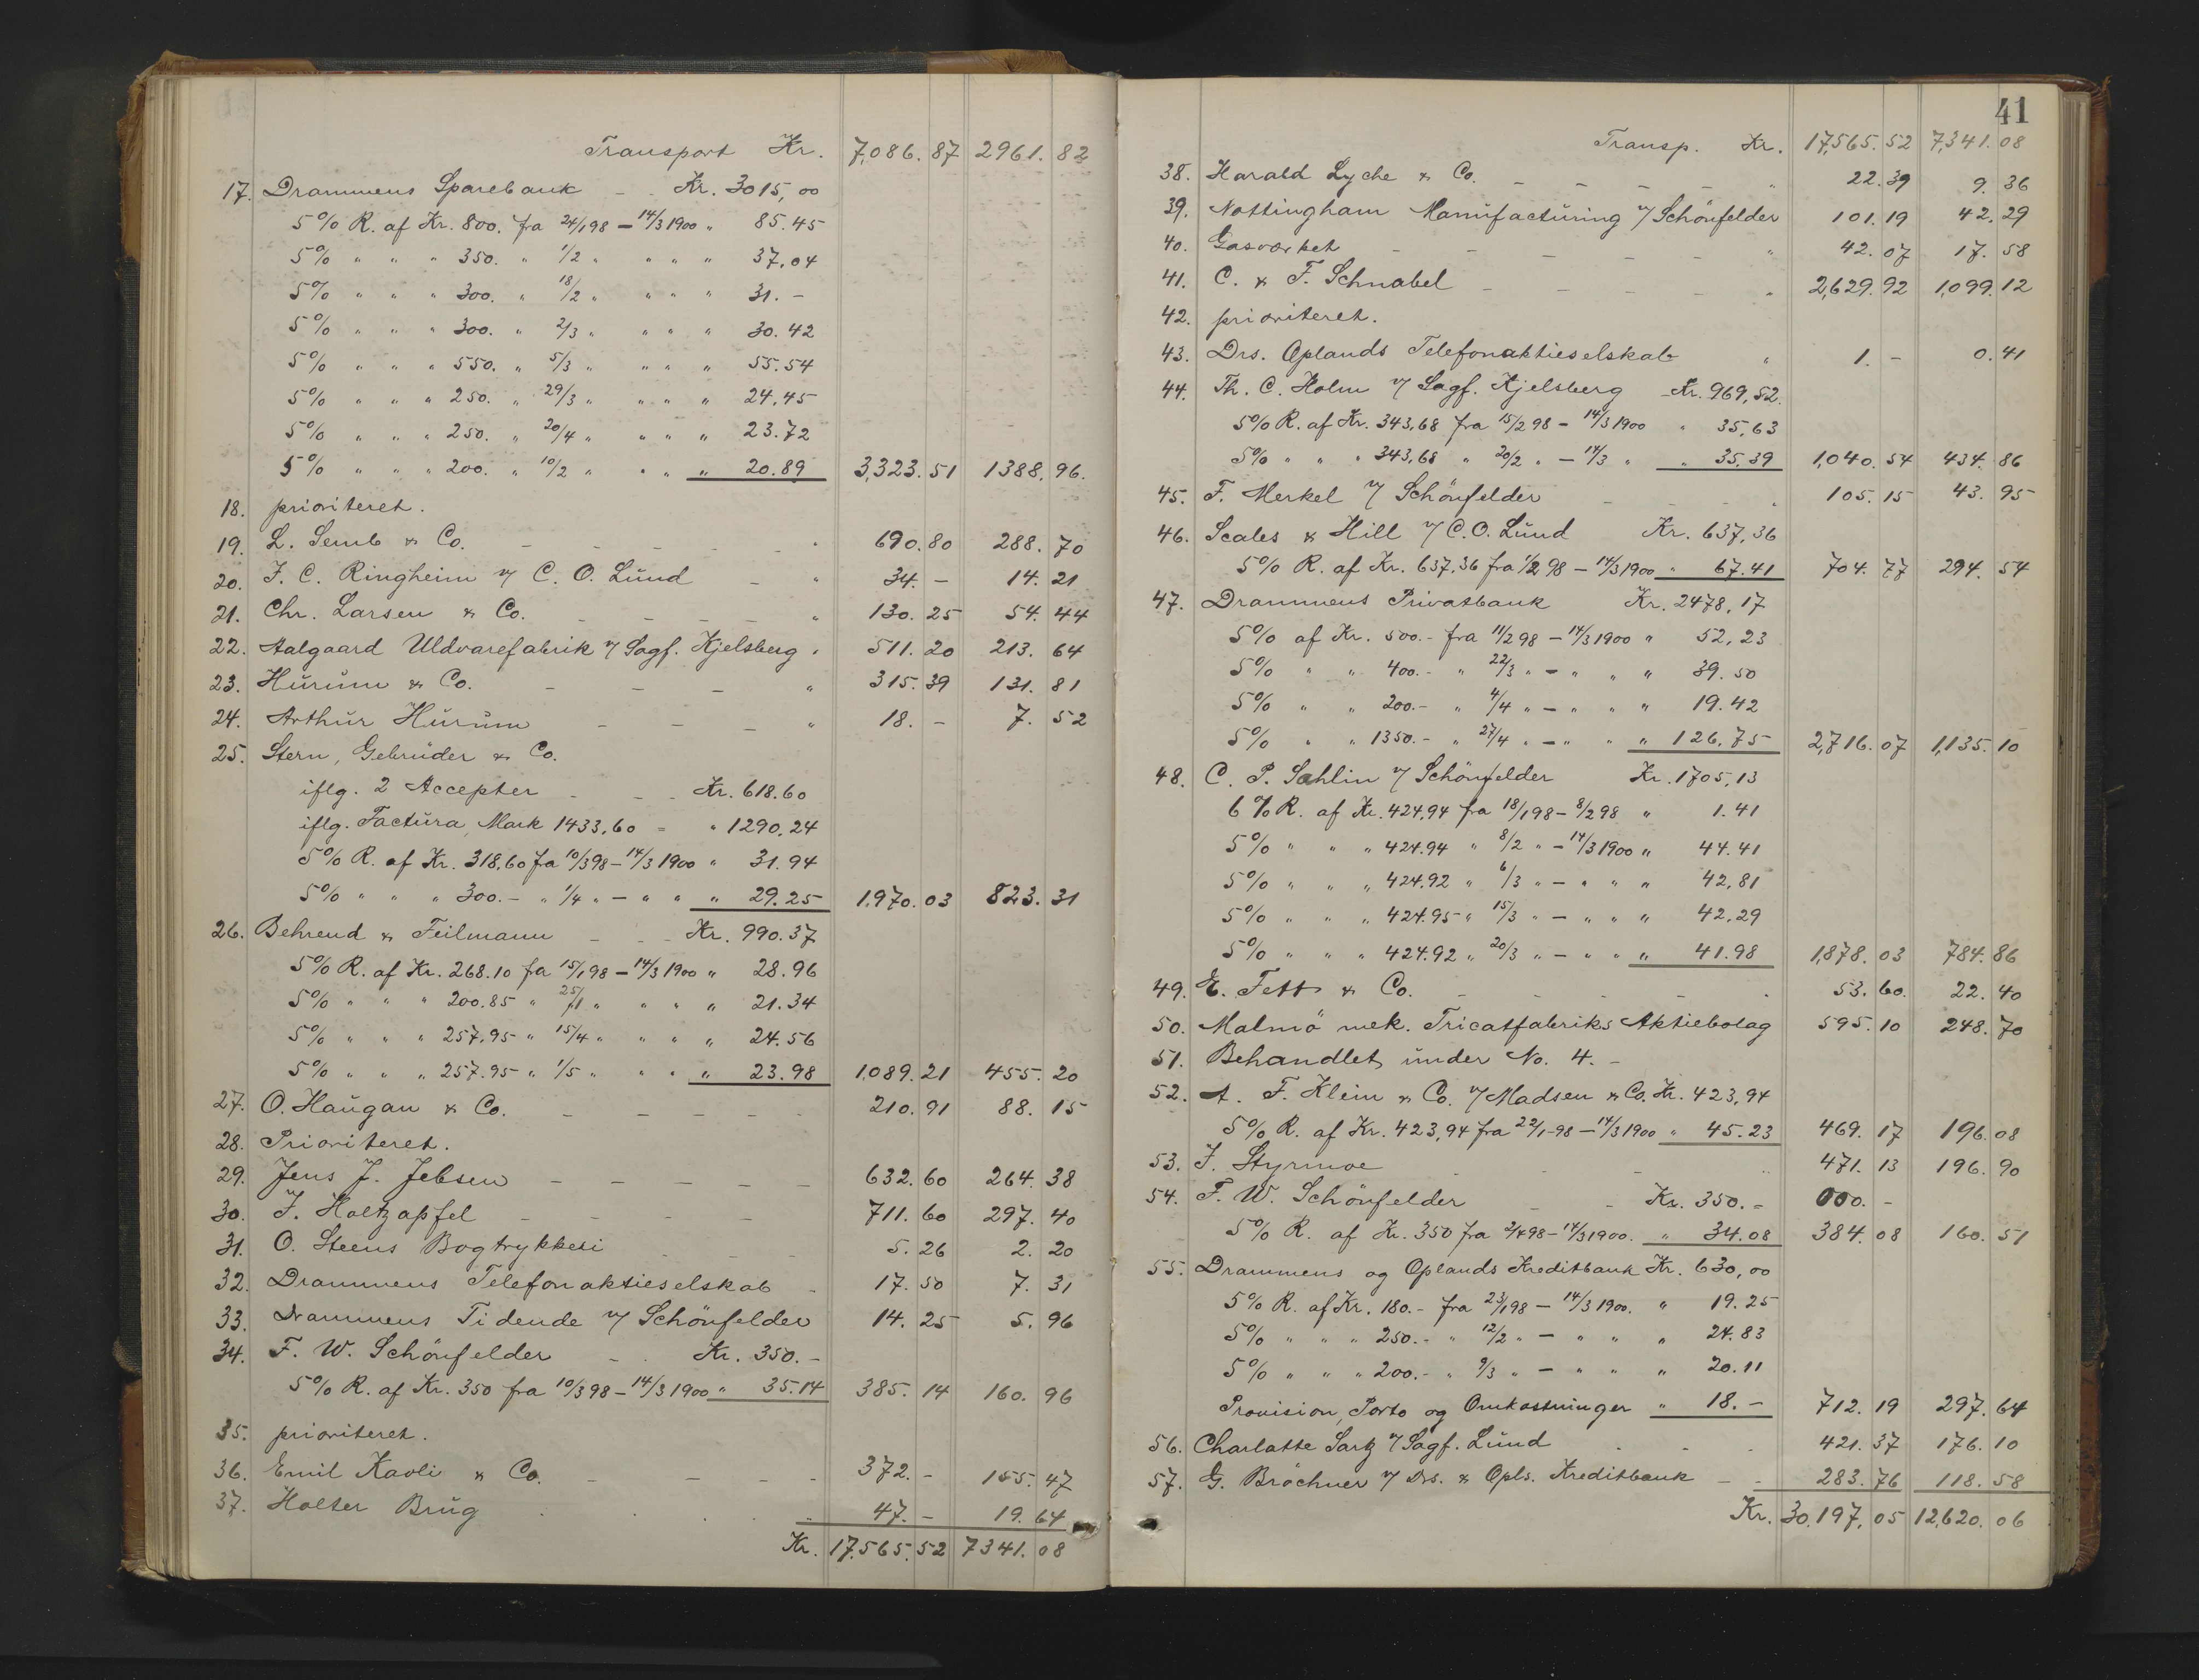 Transport Kr. 7,086. 87 2961. 82
17. Drammens Sparebank - - Kr. 3015,00
5% R. af Kr. 800. fra 24/1 98 - 14/3 1900 " 85.45
5% " " " 350. " 1/2 " " " " 37,04
5% " " " 300. " 18/2 " " " " 31. -
5% " " " 300. " 2/3 " " " " 30.42
5% " " " 550. " 5/3 " " " " 55.54
5% " " " 250. " 29/3 " " " " 24,45
5% " " " 250. " 20/4 " " " " 23.72
5% " " " 200. " 10/2 " " " " 20.89 3,323. 51 1388. 96.
18. prioriteret.
19. L. Semb & Co. - - - - - " 690. 80 288. 70
20. J. C. Ringheim v/ C. O. Lund - " 34. - 14. 21
21. Chr. Larsen & Co. - - - - " 130. 25 54. 44
22. Aalgaard Uldvarefabrik v/ Sagf. Kjelsberg " 511. 20 213. 64
23. Hurum & Co. - - - " 315. 39 131. 81
24. Arthur Hurum - - - " 18. - 7. 52
25. Stern, Gebrüder & Co.
iflg. 2 Accepter - - - Kr. 618.60
iflg. Factura, Mark 1433,60 = " 1290.24
5% R. af Kr. 318,60 fra 10/3 98 - 14/3 1900 " 31.94
5% " " " 300.- " 1/4 " - " " " 29.25 1,970. 03 823. 31
26. Behrend & Feilmann - - - Kr. 990.37
5% R. af Kr. 268.10 fra 15/1 98 - 14/3 1900 " 28.96
5% " " " 200.85 " 25/1 " " " " 21.34
5% " " " 257.95 " 15/4 " " " " 24.56
5% " " " 257.95 " 1/5 " " " " 23.98 1,089. 21 455. 20
27. O. Haugan & Co. - - - - - 210. 91 88. 15
28. Prioriteret.
29. Jens J. Jebsen - - - - - 632. 60 264. 38
30. J. Holtzapfel - - - - 711. 60 297. 40
31. O. Steens Bogtrykkeri - - - 5. 26 2. 20
32. Drammens Telefonaktieselskab - 17. 50 7. 31
33. Drammens Tidende v/ Schönfelder 14. 25 5. 96
34. F. W. Schönfelder - - Kr. 350. -
5% R. af Kr. 350 fra 10/3 98 - 14/3 1900 " 35.14 385. 14 160. 96
35. prioriteret.
36. Emil Kavli & Co. - - - - 372. - 155. 47
37. Holter Brug . . . . 47. - 19. 64
Kr. 17,565. 52 7341. 08
41
Transp. Kr. 17,565. 52 7,341. 08
38. Harald Lyche & Co. - - - - " 22. 39 9. 36
39. Nottingham Manufacturing v/ Schönfelder 101. 19 42. 29
40. Gasværket - - - - - " 42. 07 17. 58
41. C. & F. Schnabel - - - - " 2,629. 92 1,099. 12
42. prioriteret.
43. Drs. Oplands Telefonaktieselskab " 1. - 0. 41
44. Th. C. Holm v/ Sagf. Kjelsberg Kr. 969,52.
5% R. af Kr. 343,68 fra 15/2 98 - 14/3 1900 " 35,63
5% " " " 343,68 " 20/2 " - 14/3 " " 35,39 1,040. 54 434. 86
45. F. Merkel v/ Schönfelder - - - 105. 15 43. 95
46. Scales & Hill v/ C. O. Lund Kr. 637,36
5% R. af Kr. 637.36 fra 1/2 98 - 14/3 1900 " 67.41 704. 77 294. 54
47. Drammens Privatbank Kr. 2478,17
5% af Kr. 500.- fra 11/2 98 - 14/3 1900 " 52,23
5% " " 400.- " 22/3 " - " " " 39.50
5% " " 200.- " 4/4 " - " " " 19.42
5% " " 1350.- " 27/4 " - " " " 126,75 2,716. 07 1,135. 10
48. C. P. Sahlin v/ Schönfelder Kr. 1705,13
6% R. af Kr. 424.94 fra 18/1 98 - 8/2 98 " 1.41
5% " " " 424.94 " 8/2 " - 14/3 1900 " 44.41
5% " " " 424.92 " 6/3 " - " " " 42,81
5% " " " 424.95 " 15/3 " - " " " 42,29
5% " " " 424.92 " 20/3 " - " " " 41.98 1,878. 03 784. 86
49. E. Fett & Co. - - - - . 53. 60. 22. 40
50. Malmö mek. Tricotfabriks Aktiebolag 595. 10 248. 70
51. Behandlet under No. 4. -
52. A. F. Klein & Co. v/ Madsen & Co. Kr. 423,94
5% R. af Kr. 423,94 fra 22/1-98 - 14/3 1900 " 45.23 469. 17 196. 08
53. J. Styrmoe - - - " 471. 13 196. 90
54. F. W. Schönfelder - - Kr. 350. = 000. -
5% R. af Kr. 350 fra 2/4 98 - 14/3 1900. " 34.08 384. 08 160. 51
55. Drammens og Oplands Kreditbank Kr. 630,00
5% R. af Kr. 180.- fra 23/1 98 - 14/3 1900. " 19.25
5% " " " 250.- " 12/2 " - " " " 24.83
5% " " " 200.- " 9/3 " - " " " 20.11
Provision, Porto og Omkostninger " 18. - 712. 19 297. 64
56. Charlotte Sartz v/ Sagf. Lund . - . 421. 37 176. 10
57. G. Bröchner v/ Drs. & Opls. Kreditbank - - 283. 76 118. 58
Kr. 30,197, 05 12,620. 06